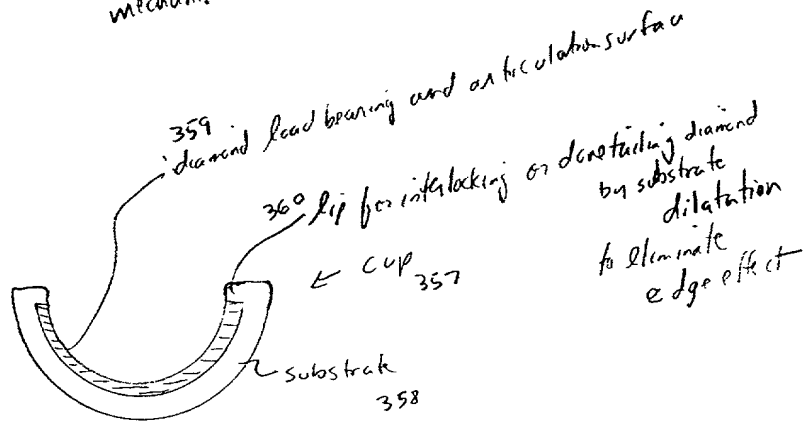 359
diamond load bearing and articulation surface
360 lip for interlocking or dovetailing diamond
by substrate
dilatation
to eliminate
edge effect
← cup
357
substrate
358